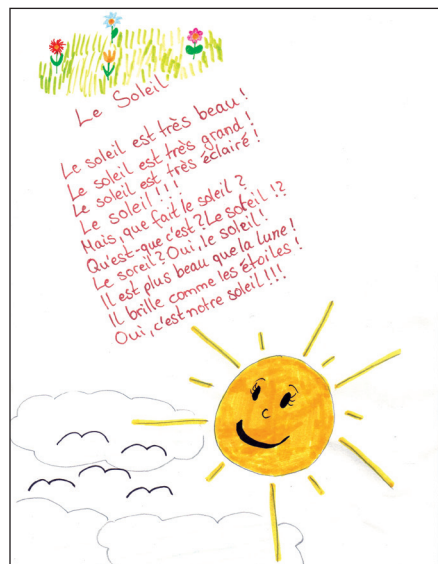 Le Soleil
Le soleil est très beau !
Le soleil est très grand !
Le soleil est très éclairé !
Le soleil !!!
Mais, que fait le soleil ?
Qu'est-que c'est ? Le soleil !?
Le soreil ? Oui, le soleil !
Il est plus beau que la lune !
Il brille comme les étoiles !
Oui, c'est notre soleil !!!